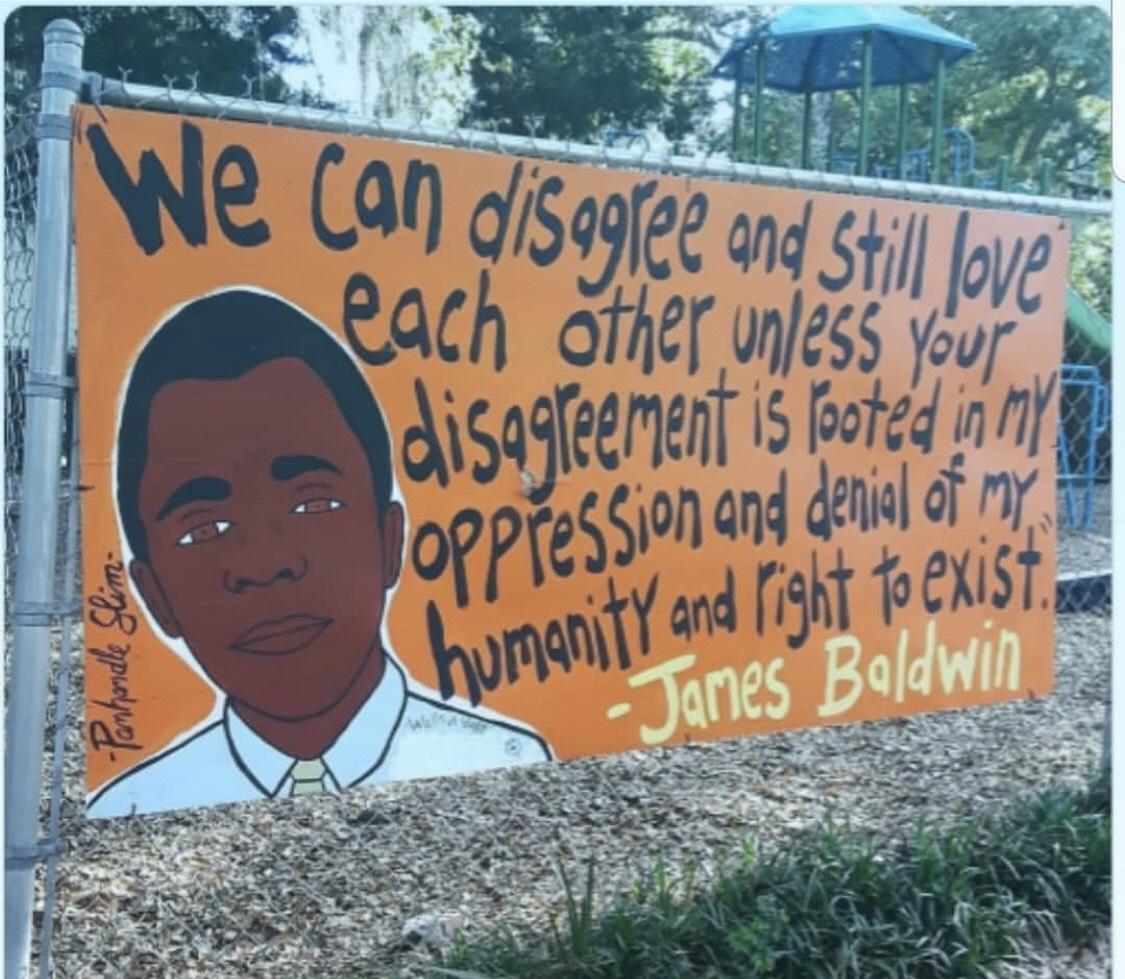 "We can disagree and still love
each other unless your
disagreement is rooted in my
oppression and denial of my
humanity and right to exist."
-James Baldwin
-Panhandle Slim-